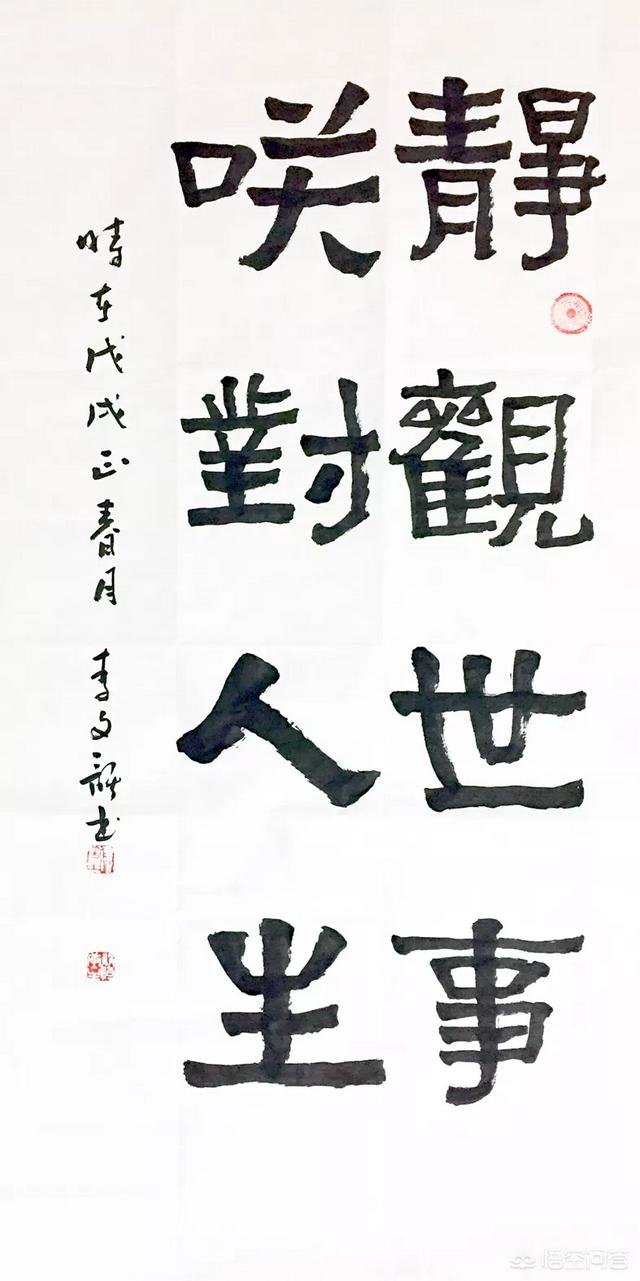 靜觀世事
咲對人生
時在戊戌正春月 李文书
悟空问答